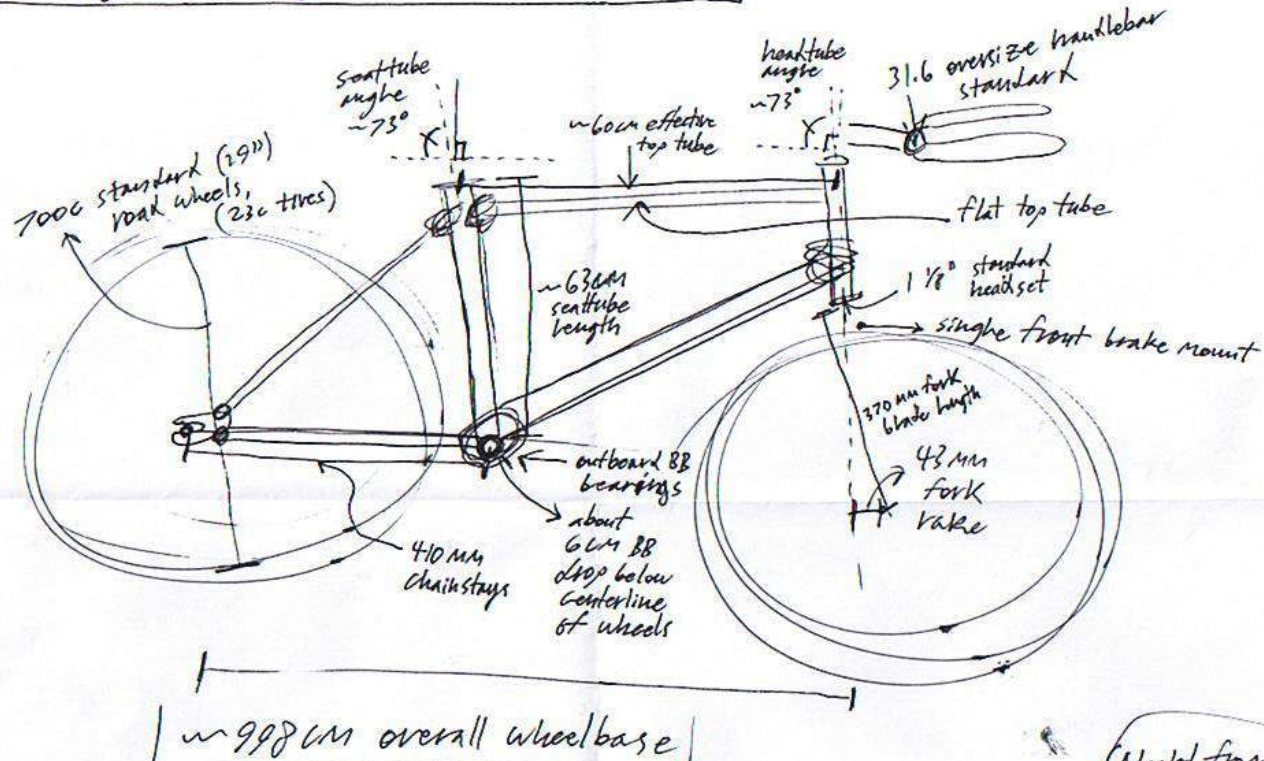 seattube
angle
~73°
headtube
angle
~73°
31.6 oversize handlebar
standard
~60cm effective
top tube
700c standard (29")
road wheels,
(23c tires)
flat top tube
~63cm
seattube
length
1 1/8" standard
headset
single front brake mount
370 mm fork
blade length
43 mm
fork
rake
outboard BB
bearings
about
6cm BB
drop below
centerline
of wheels
410 mm
chainstays
~998cm overall wheelbase